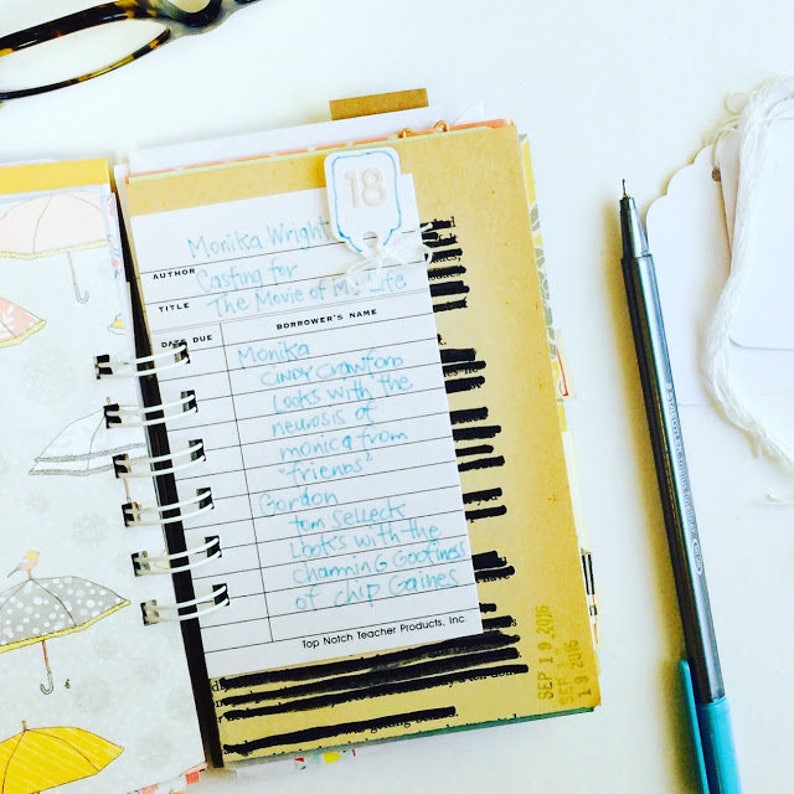 18
Monika Wright
AUTHOR
Casting for
TITLE The Movie of My Life
DATE DUE BORROWER'S NAME
Monika
Cindy Crawford
Looks with the
neurosis of
monica from
"friends"
Gordon
tom selleck
Looks with the
charming Goofiness
of chip Gaines
Top Notch Teacher Products, Inc.
SEP 19 2016
SEP 19 2016
was getting